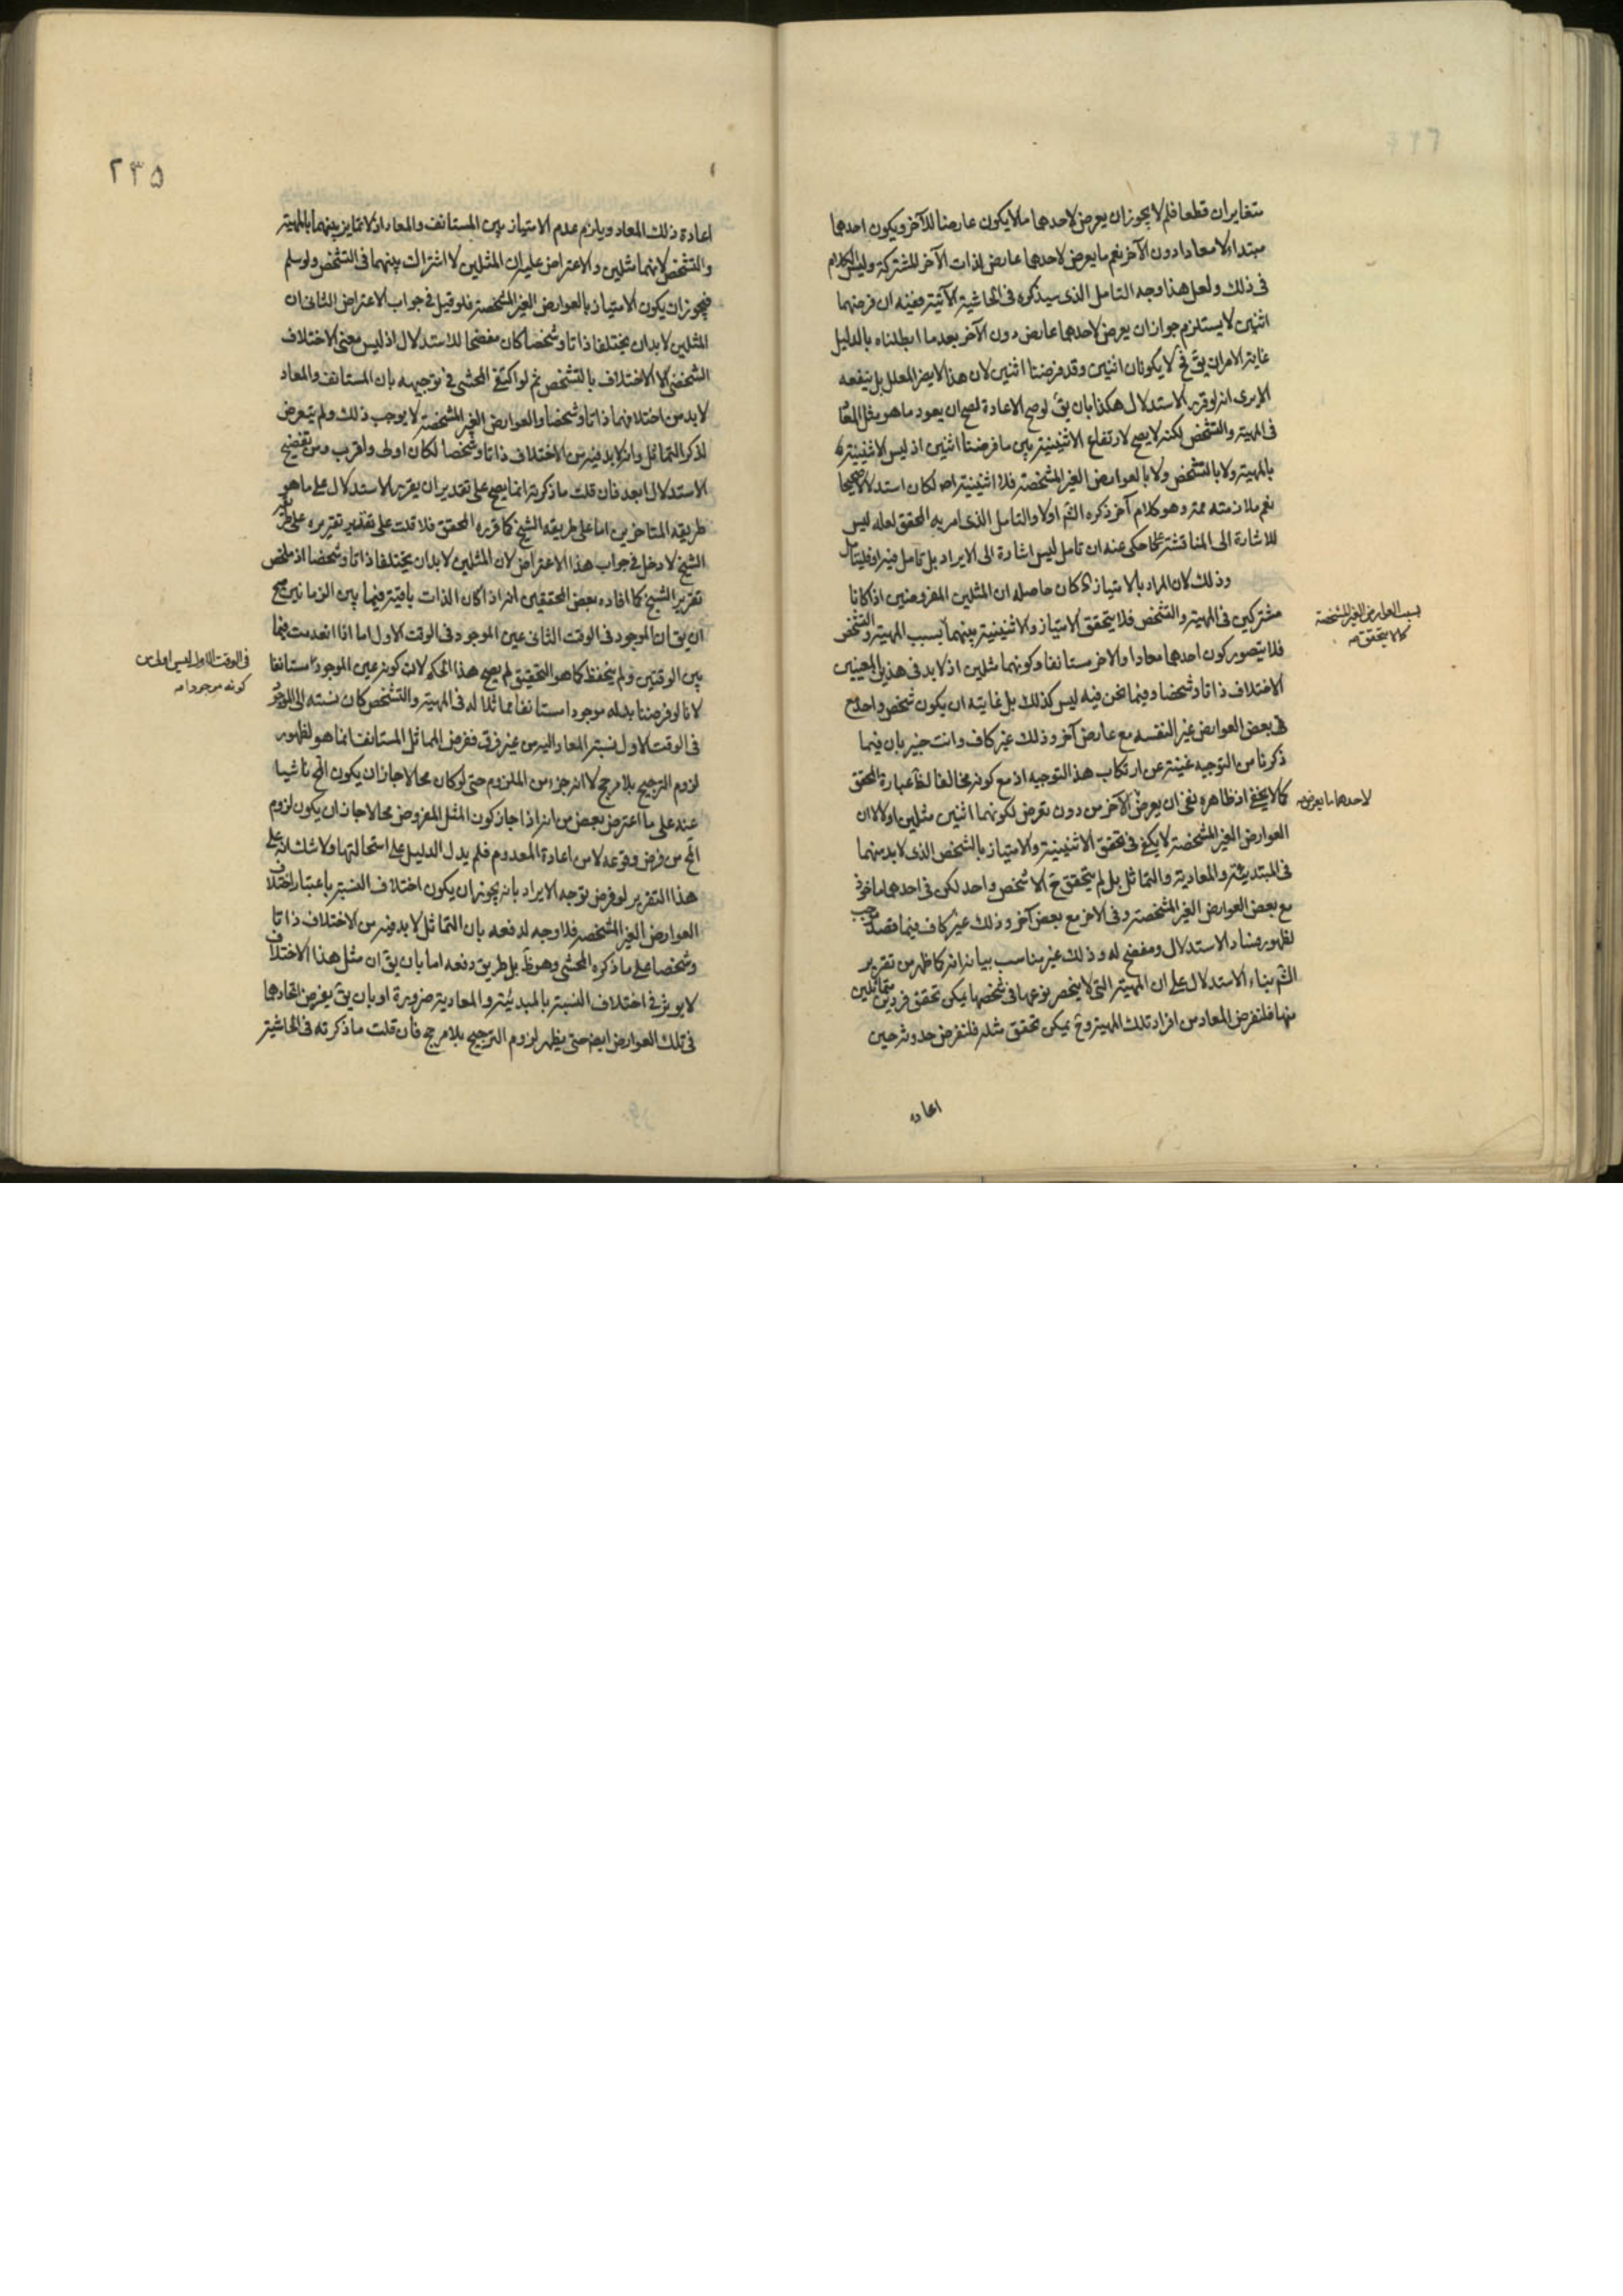 متغايران قطعا فلم لا يجوز ان يعرض لاحدهما ما لا يكون عارضا للآخر ويكون احدهما
مبتداء لا معادا دون الآخر نعم ما يعرض لاحدهما عارض لذات الآخر للمشتركة وليس الكلام
فى ذلك ولعل هذا وجه التامل الذى سيذكره فى الحاشية الآتية وفيه ان فرضهما
اثنين لا يستلزم جواز ان يعرض لاحدهما عارض دون الآخر بعد ما ابطلناه بالدليل
غاية الامر ان يق فح لا يكونان اثنين وقد فرضنا اثنين لان هذا لا يضر المعلل بل ينفعه
الا يرى انه لو قرر الاستدلال هكذا بان يق لو صح الاعادة لصح ان يعود ما هو مثل المعاد
فى المهية والتشخص لكنه لا يصح لارتفاع الاثنينية بين ما فرضنا اثنين اذ ليس الاثنينية
بالمهية ولا بالتشخص ولا بالعوارض الغير المشخصة فلا اثنينية اصلا لكان استدلالا صحيحا
نعم ملازمته ممـ وهو كلام آخر ذكره الشم اولا والتامل الذى امر به المحقق لعله ليس
للاشارة الى المناقشة كما حكى عنه ان تامل ليس اشارة الى الايراد بل تامل فيه او فليتامل
وذلك لان المراد بالامتياز كان حاصله ان المثلين المفروضين اذ كانا
مشتركين فى المهية والتشخص فلا يتحقق الامتياز والاثنينية بينهما بسبب المهية والتشخص
بسبب العوارض الغير المشخصة
كما لا يتحقق
فلا يتصور كون احدهما معادا والاخر مستانفا وكونهما مثلين اذ لا بد فى هذين المعنيين
الاختلاف ذاتا وشخصا وفيما نحن فيه ليس كذلك بل غايته ان يكون شخص واحد مع
فى بعض العوارض غير النفسه مع عارض آخر وذلك غير كاف وانت خبير بان فيما
ذكرنا من التوجيه غنية عن ارتكاب هذا التوجيه اذ مع كونه مخالفا لظ عبارة المحقق
كما لا يخفى اذ ظاهره نفى ان يعرض الآخر من دون تعرض لكونهما اثنين مثلين اولا ان
لاحدهما ما يعرض
العوارض الغير المشخصة لا يكفى فى تحقق الاثنينية والامتياز بالشخص الذى لا بد منهما
فى المبتدئية والمعادية والتماثل بل لم يتحقق ح الا شخص واحد لكن فى احدهما ماخوذ
مع بعض العوارض الغير المشخصة وفى الاخر مع بعض آخر وذلك غير كاف فيما قصد
لظهور فساد الاستدلال ومفضح له وذلك غير مناسب بيانه انه كما ظهر من تقرير
الشم بناء الاستدلال على ان المهية التى لا ينحصر نوعها فى شخصها يمكن تحقق فردين متماثلين
منها فلنفرض المعاد من افراد تلك المهية وح يمكن تحقق مثله فلنفرض حدوثه حين
اعادة
٢٣٥
اعادة ذلك المعاد ويلزم عدم الامتياز بين المستانف والمعاد اذ لا تمايز بينهما بالمهية
والتشخص لانهما مثلين والاعتراض عليه ان المثلين لا اشتراك بينهما فى التشخص ولو سلم
فيجوز ان يكون الامتياز بالعوارض الغير المشخصة فلو قيل فى جواب الاعتراض الثانى ان
المثلين لا بد ان يختلفا ذاتا وشخصا كان مفضحا للاستدلال اذ ليس معنى الاختلاف
الشخصى الا الاختلاف بالتشخص ثم لو اكتفى المحشى فى توجيهه بان المستانف والمعاد
لا بد من اختلافهما ذاتا وشخصا والعوارض الغير المشخصة لا يوجب ذلك ولم يتعرض
لذكر التماثل وانه لا بد فيه من الاختلاف ذاتا وشخصا لكان اولى واقرب ومن تفضيح
الاستدلال ابعد فان قلت ما ذكرته انما يصح على تقدير ان يقرر الاستدلال على ما هو
طريقه المتاخرين اما على طريقه الشيخ كما قرره المحقق فلا قلت على تقدير تقريره على طريقه
الشيخ لا دخل فى جواب هذا الاعتراض لان المثلين لا بد ان يختلفا ذاتا وشخصا اذ ملخص
تقرير الشيخ كما افاده بعض المحققين انه اذا كان الذات باقية فيما بين الزمانين صح
ان يق ان الموجود فى الوقت الثانى عين الموجود فى الوقت الاول اما اذا انعدمت فيما
بين الوقتين ولم ينحفظ كما هو التحقيق لم يصح هذا الحكم لان كونه عين الموجود مستانفا
فى الوقت الاول ليس اولى من
كونه موجودا
لانا لو فرضنا بدله موجودا مستانفا مماثلا له فى المهية والتشخص كان نسبته الى الموجود
فى الوقت الاول نسبة المعاد اليه من غير فرق ففرض المماثل المستانف انما هو لظهور
لزوم الترجيح بلا مرجح لا انه جزء من الملزوم حتى لو كان محالا جاز ان يكون المح ناشيا
عنه على ما اعترض بعض من انه اذا جاز كون المثل المفروض محالا جاز ان يكون لزوم
المح من فرض وقوعه لا من اعادة المعدوم فلم يدل الدليل على استحالتها ولا شك انه على
هذا التقرير لو فرض توجه الايراد بانه يجوز ان يكون اختلاف النسبة باعتبار اختلاف
العوارض الغير المشخصه فلا وجه لدفعه بان التماثل لا بد فيه من الاختلاف ذاتا
وشخصا على ما ذكره المحشى وهو ظ بل طريق دفعه اما بان يق ان مثل هذا الاختلاف
لا يوثر فى اختلاف النسبة بالمبدئية والمعادية ضرورة او بان يق يفرض اتحادهما
فى تلك العوارض ايضا حتى يظهر لزوم الترجيح بلا مرجح فان قلت ما ذكرته فى الحاشية